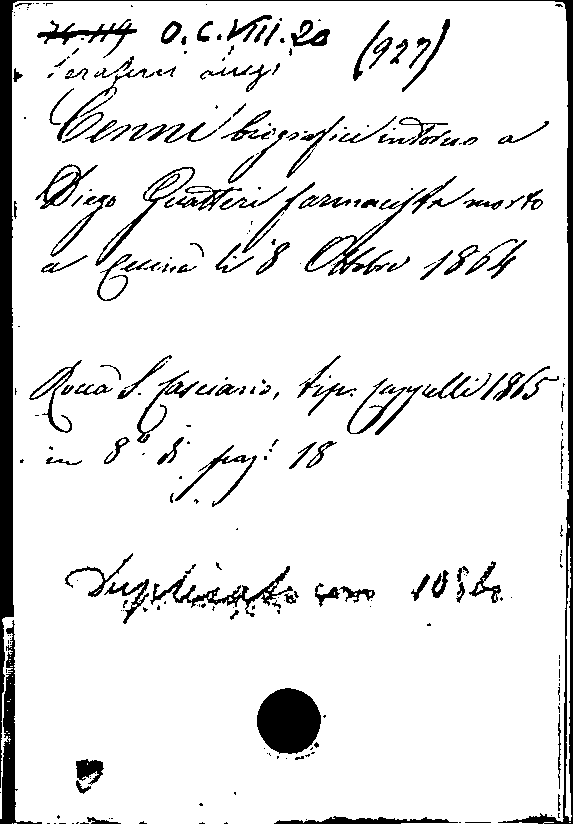 74.119 O.C.VIII.20 (927)
Serafini Luigi
Cenni biografici intorno a
Diego Guatteri farmacista morto
a Cecina li 8 Ottobre 1864
Rocca S. Casciano, tip. Cappelli 1865
in 8º di pag. 18
Duplicato con